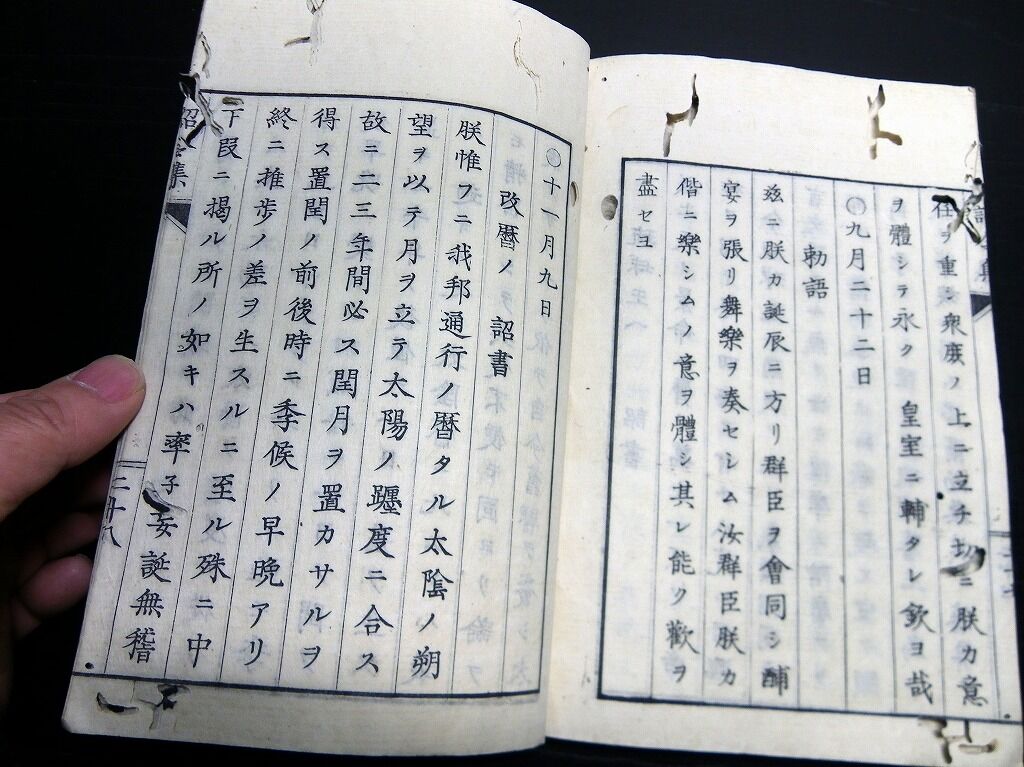 在ヲ重シ衆庻ノ上ニ立チ切ニ朕カ意
ヲ體シテ永ク皇室ニ輔タレ欽ヨ哉
◯九月二十二日
勅語
玆ニ朕カ誕辰ニ方リ群臣ヲ會同シ酺
宴ヲ張リ舞樂ヲ奏セシム汝群臣朕カ
偕ニ樂シムノ意ヲ體シ其レ能ク歡ヲ
盡セヨ
◯十一月九日
改暦ノ詔書
朕惟フニ我邦通行ノ暦タル太陰ノ朔
望ヲ以テ月ヲ立テ太陽ノ躔度ニ合ス
故ニ二三年間必ス閏月ヲ置カサルヲ
得ス置閏ノ前後時ニ季候ノ早晩アリ
終ニ推步ノ差ヲ生スルニ至ル殊ニ中
下段ニ揭ル所ノ如キハ率子妄誕無稽
二十八